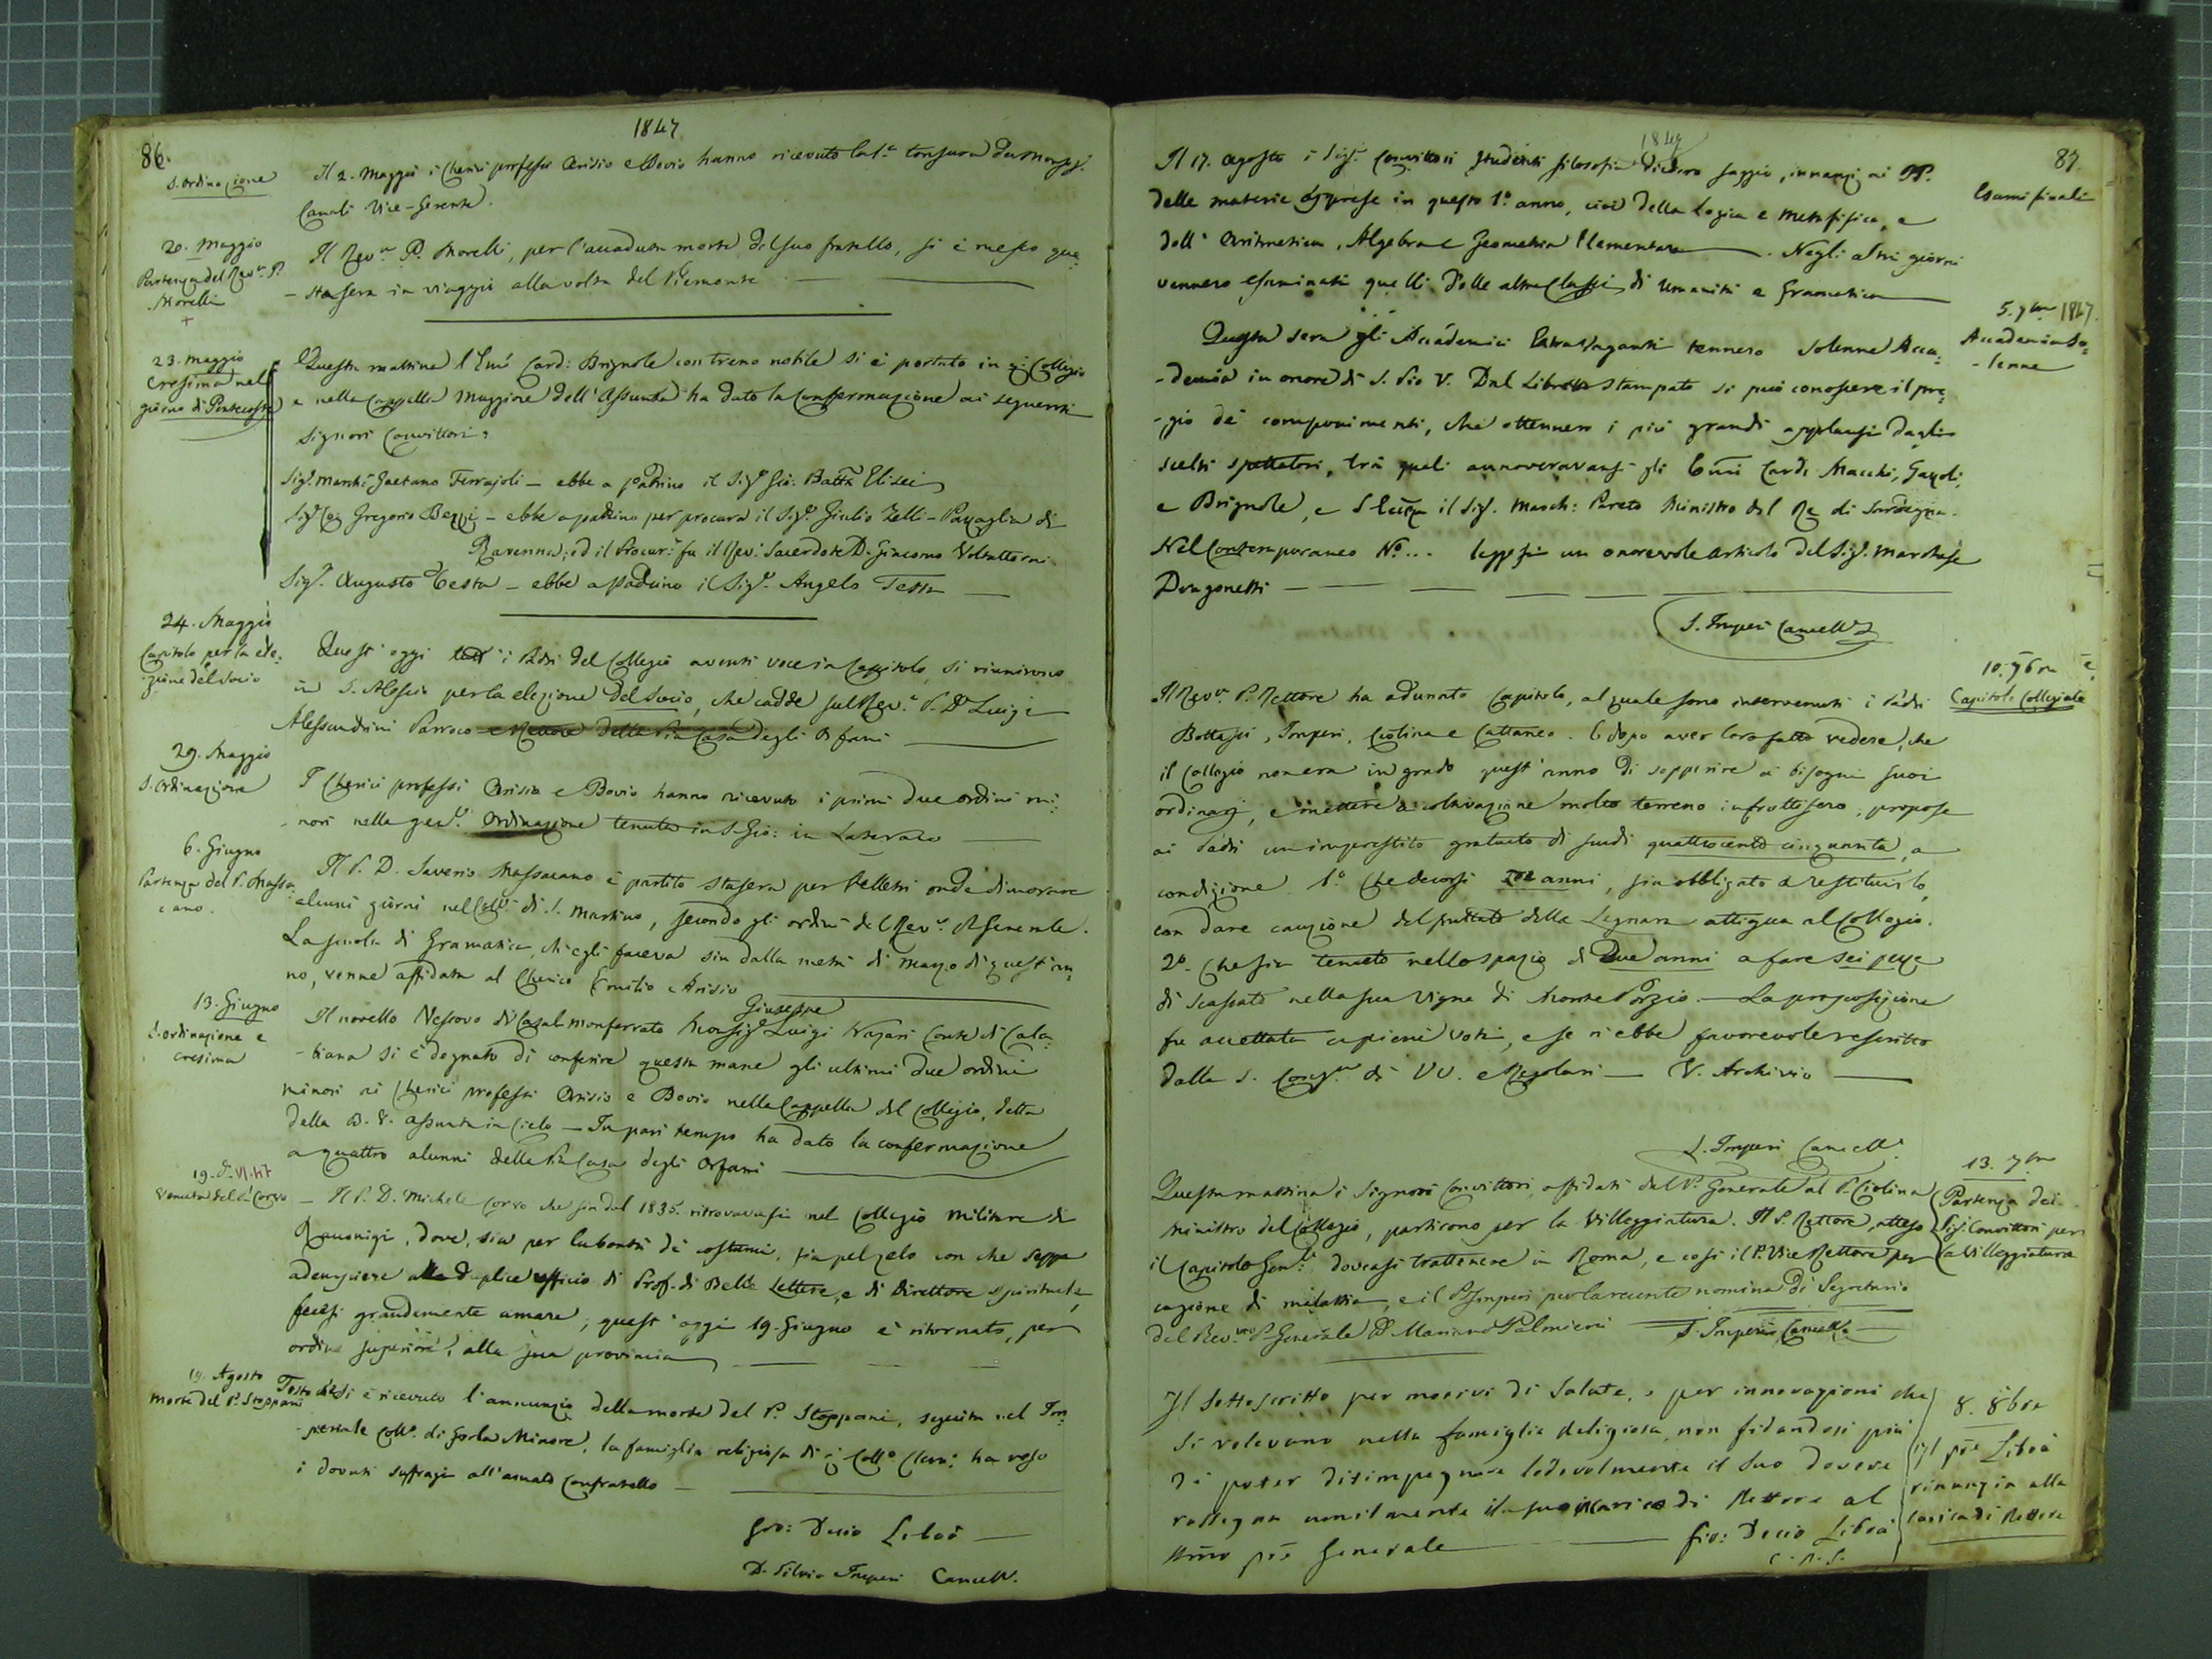 86.
1847
S. Ordinazione
Il 2. Maggio i Cherici professi Arisio e Bovio hanno ricevuto la S.a tonsura da Monsig.r
Canali Vice-Gerente.
20. Maggio
Partenza del Rev.mo P.
Morelli
Il Rev.mo P. Morelli, per l'accaduta morte del suo fratello, si è messo que=
-stasera in viaggio alla volta del Piemonte
23. Maggio
Cresima nel
giorno di Pentecoste
Questa mattina l'Emo Card: Brignole con treno nobile si è portato in q. Collegio
e nella Cappella Maggiore dell'Assunta ha dato la Confermazione ai seguenti
Signori Convittori:
Sig. March: Gaetano Ferrajoli - ebbe a padrino il Sig.r Gio: Batta Elisei
Sig. Gregorio Bezzi - ebbe a padrino per procura il Sig.r Giulio Zelli-Pazzaglia di
Ravenna; ed il Procur: fu il Rev: Sacerdote D. Giacomo Voltattorni
Sig.r Augusto Testa - ebbe a padrino il Sig.r Angelo Testa
24. Maggio
Capitolo per la ele=
zione del Socio
Quest'oggi tutti i Padri del Collegio aventi voce in Capitolo, si riunirono
in S. Alessio per la elezione del Socio, che cadde sul Rev.o P. D. Luigi
Alessandrini Parroco e Rettore della Pia Casa degli Orfani
29. Maggio
S. Ordinazione
I Cherici professi Arisio e Bovio hanno ricevuto i primi due ordini mi=
nori nella gen.le Ordinazione tenuta in S. Gio: in Laterano
6. Giugno
Partenza del P. Massa
cano.
Il P. D. Saverio Massacano è partito stasera per Velletri onde dimorare
alcuni giorni nel Coll.o di S. Martino, secondo gli ordini del Rev.mo P. Generale.
La scuola di Gramatica, ch'egli faceva sin dalla metà di Marzo di quest'an=
no, venne affidata al Cherico Emilio Arisio
13. Giugno
S. Ordinazione e
cresima
Giuseppe
Il novello Vescovo di Casal Monferrato Monsig.r Luigi Nazari Conte di Cala=
-biana si è degnato di conferire questa mane gli ultimi due ordini
minori ai Cherici professi Arisio e Bovio nella Cappella del Collegio, detta
della B. V. assunta in Cielo - In pari tempo ha dato la confermazione
a quattro alunni della Pia Casa degli Orfani
19. d.o
Venuta del P. Corvo
- Il P. D. Michele Corvo che sin dal 1835. ritrovavasi nel Collegio Militare di
Racconigi, dove, sia per la bontà de' costumi, sia pel zelo con che seppe
adempiere alla duplice ufficio di Prof. di Belle Lettere, e di Direttore spirituale,
fecesi grandemente amare, quest'oggi 19. Giugno è ritornato, per
ordine superiore, alla sua provincia
19. Agosto
Morte del P. Stoppani
Testo che si è ricevuto l'annunzio della morte del P. Stoppani, seguita nel Im=
-periale Coll.o di Gorla Minore, la famiglia religiosa di q. Coll.o Clem: ha reso
i dovuti suffragi all'amato Confratello
Gio: Decio Liboà
D. Silvio Imperi Cancell.
1847
87.
Esami finali
Il 17. Agosto i Sig.i Convittori studenti filosofia diedero saggio, innanzi ai PP.
delle materie apprese in questo 1.o anno, cioè della Logica e Metafisica, e
dell'Aritmetica, Algebra e Geometria Elementare. Negli altri giorni
vennero esaminati quelli delle altre Classi di Umanità e Gramatica
5. 7bre 1847.
Accademia So=
-lenne
Questa sera gli Accademici Extravaganti tennero solenne Acca=
-demia in onore di S. Pio V. Dal Libretto stampato si può conoscere il pre=
-gio dei componimenti, che ottennero i più grandi applausi dagli
scelti spettatori, tra quali annoveravansi gli Emi Card: Macchi, Gazoli,
e Brignole, e S. Ecc.za il Sig. March: Pareto Ministro del Re di Sardegna.
Nel Contemporaneo N.o ... leggesi un onorevole articolo del Sig. Marchese
Dragonetti
S. Imperi Cancell.
10. 7bre
Capitolo Collegiale
Il Rev.mo P. Rettore ha adunato Capitolo, al quale sono intervenuti i Padri
Bottazzi, Imperi, Ciolina e Cattaneo. E dopo aver loro fatto vedere, che
il Collegio non era in grado quest'anno di sopperire ai bisogni suoi
ordinarj, e mettere a coltivazione molto terreno infruttifero, propose
ai Padri un imprestito gratuito di scudi quattrocento cinquanta, a
condizione 1.o Che decorsi anni, sia obbligato a restituirlo,
con dare cauzione del fruttato della Legnara attigua al Collegio.
2.o Che sia tenuto nello spazio di due anni a fare sei pezze
di scassato nella sua vigna di Monte Porzio. - La proposizione
fu accettata a pieni voti, e se n'ebbe favorevole rescritto
dalla S. Cong.ne di VV. e Regolari - V. Archivio
S. Imperi Cancell.
13. 7bre
Partenza dei
Sig.i Convittori per
la Villeggiatura
Questa mattina i Signori Convittori, affidati dal P. Generale al P. Ciolina
Ministro del Collegio, partirono per la Villeggiatura. Il P. Rettore, atteso
il Capitolo Gen.le doveasi trattenere in Roma, e così il P. Vice Rettore per
cagione di malattia, e il P. Imperi per la recente nomina di Segretario
del Rev.mo P. Generale D. Mariano Palmieri
S. Imperi Cancell.
8. 8bre
Il P.re Liboà
rinunzia alla
carica di Rettore
Il sottoscritto per motivi di salute, e per innovazioni che
si volevano nella famiglia religiosa, non fidandosi più
di poter disimpegnare lodevolmente il suo dovere
rassegna umilmente il suo incarico di Rettore al
Rmo P.re Generale
Gio: Decio Liboà
C. R. S.